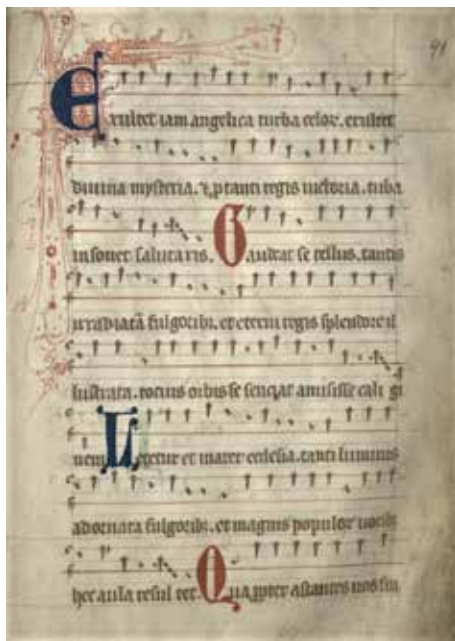 91
Exultet iam angelica turba celoꝝ. exultet
diuina mysteria. ⁊ ꝓ tanti regis uictoria. tuba
insonet salutaris. Gaudeat se tellus. tantis
irradiata̅ fulgoribꝫ. et eterni regis splendore il
lustrata. tocius orbis se senciat amisisse cali gi
nem. Letetur et mater ecclesia. tanti luminis
adornata fulgoribꝫ. et magnis populoꝝ uocibꝫ
hec aula resul tet. Qua ꝓpter astantes uos fra